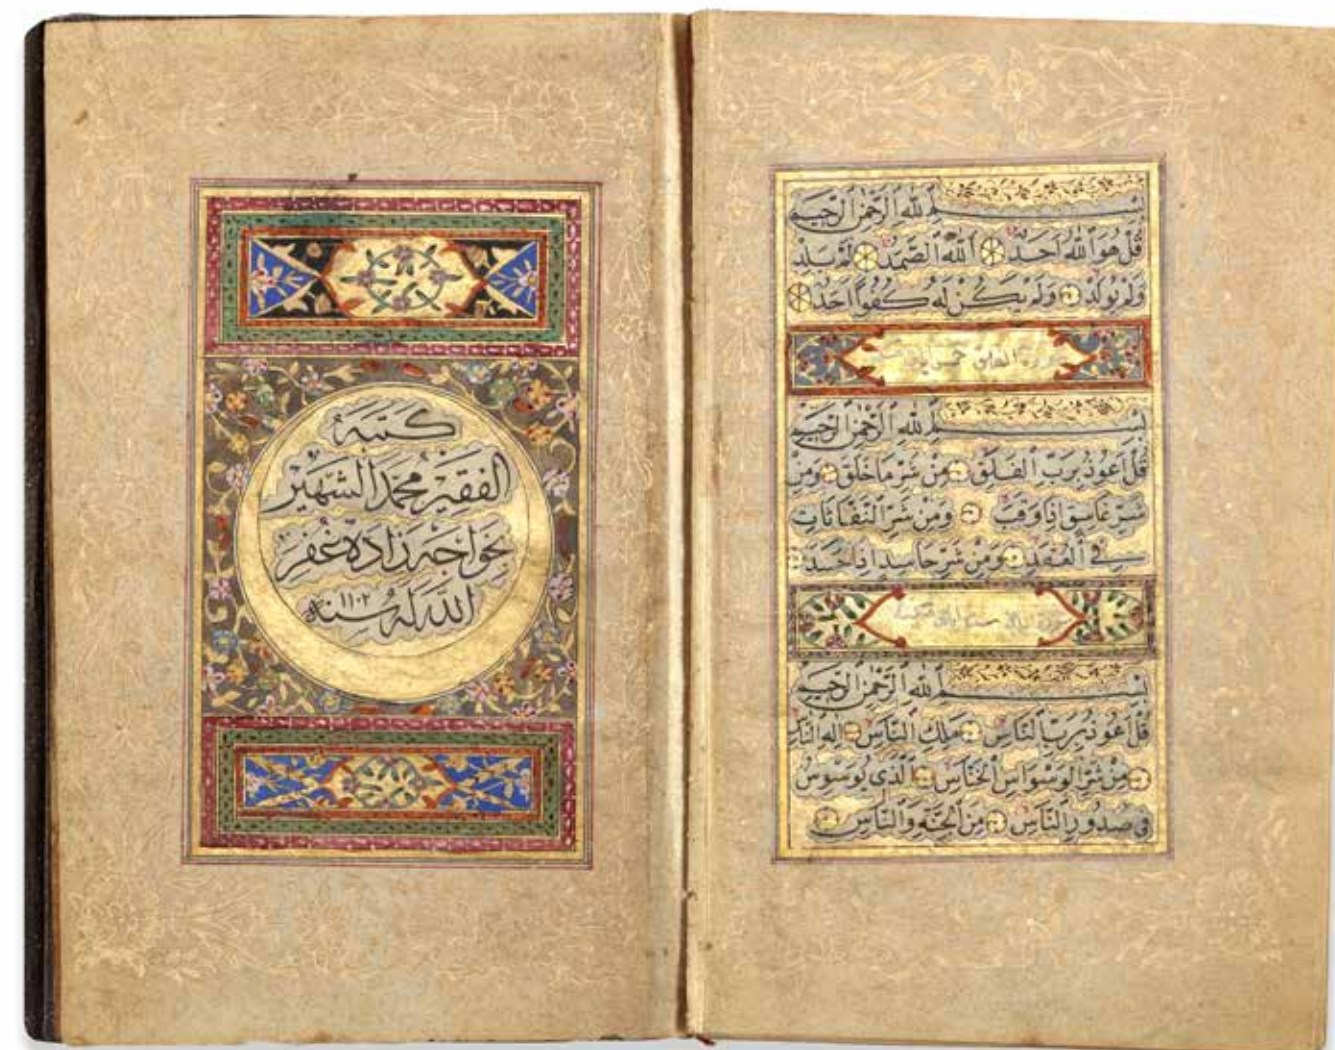 بِسْمِ اللّٰهِ الرَّحْمٰنِ الرَّحِيمِ
قُلْ هُوَ اللّٰهُ اَحَدٌ اَللّٰهُ الصَّمَدُ لَمْ يَلِدْ
وَلَمْ يُولَدْ وَلَمْ يَكُنْ لَهُ كُفُوًا اَحَدٌ
بِسْمِ اللّٰهِ الرَّحْمٰنِ الرَّحِيمِ
قُلْ اَعُوذُ بِرَبِّ الْفَلَقِ مِنْ شَرِّ مَا خَلَقَ وَمِنْ
شَرِّ غَاسِقٍ اِذَا وَقَبَ وَمِنْ شَرِّ النَّفَّاثَاتِ
فِي الْعُقَدِ وَمِنْ شَرِّ حَاسِدٍ اِذَا حَسَدَ
بِسْمِ اللّٰهِ الرَّحْمٰنِ الرَّحِيمِ
قُلْ اَعُوذُ بِرَبِّ النَّاسِ مَلِكِ النَّاسِ اِلٰهِ النَّاسِ
مِنْ شَرِّ الْوَسْوَاسِ الْخَنَّاسِ اَلَّذِي يُوَسْوِسُ
فِي صُدُورِ النَّاسِ مِنَ الْجِنَّةِ وَالنَّاسِ
كَتَبَهُ
الفقير محمد الشهير
بخواجه زاده غفر
الله له سنه ١١٠٢